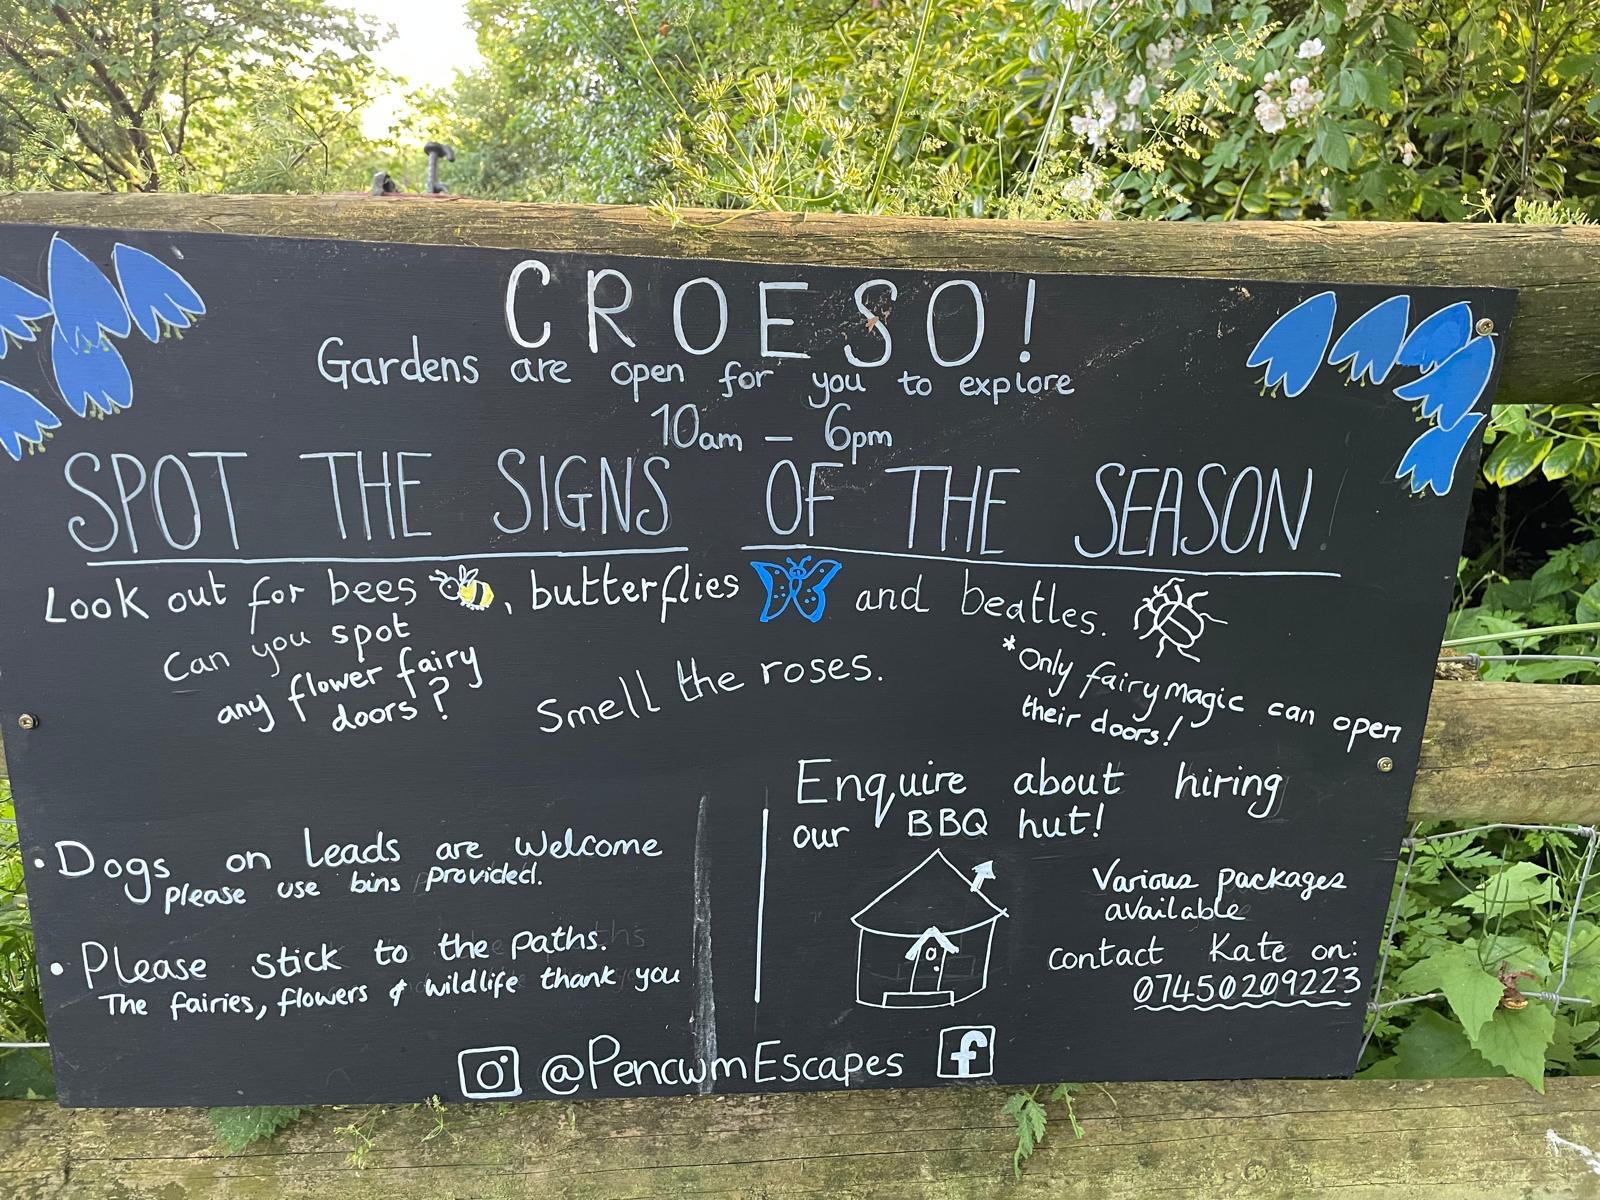 CROESO!
Gardens are open for you to explore
10am – 6pm
SPOT THE SIGNS OF THE SEASON!
Look out for bees, butterflies and beatles.
Can you spot
any flower fairy
doors?
Smell the roses.
*Only fairy magic can open
their doors!
• Dogs on leads are welcome
please use bins provided.
• Please stick to the paths.
The fairies, flowers & wildlife thank you
Enquire about hiring
our BBQ hut!
Various packages
available
contact Kate on:
07450209223
@PencwmEscapes f